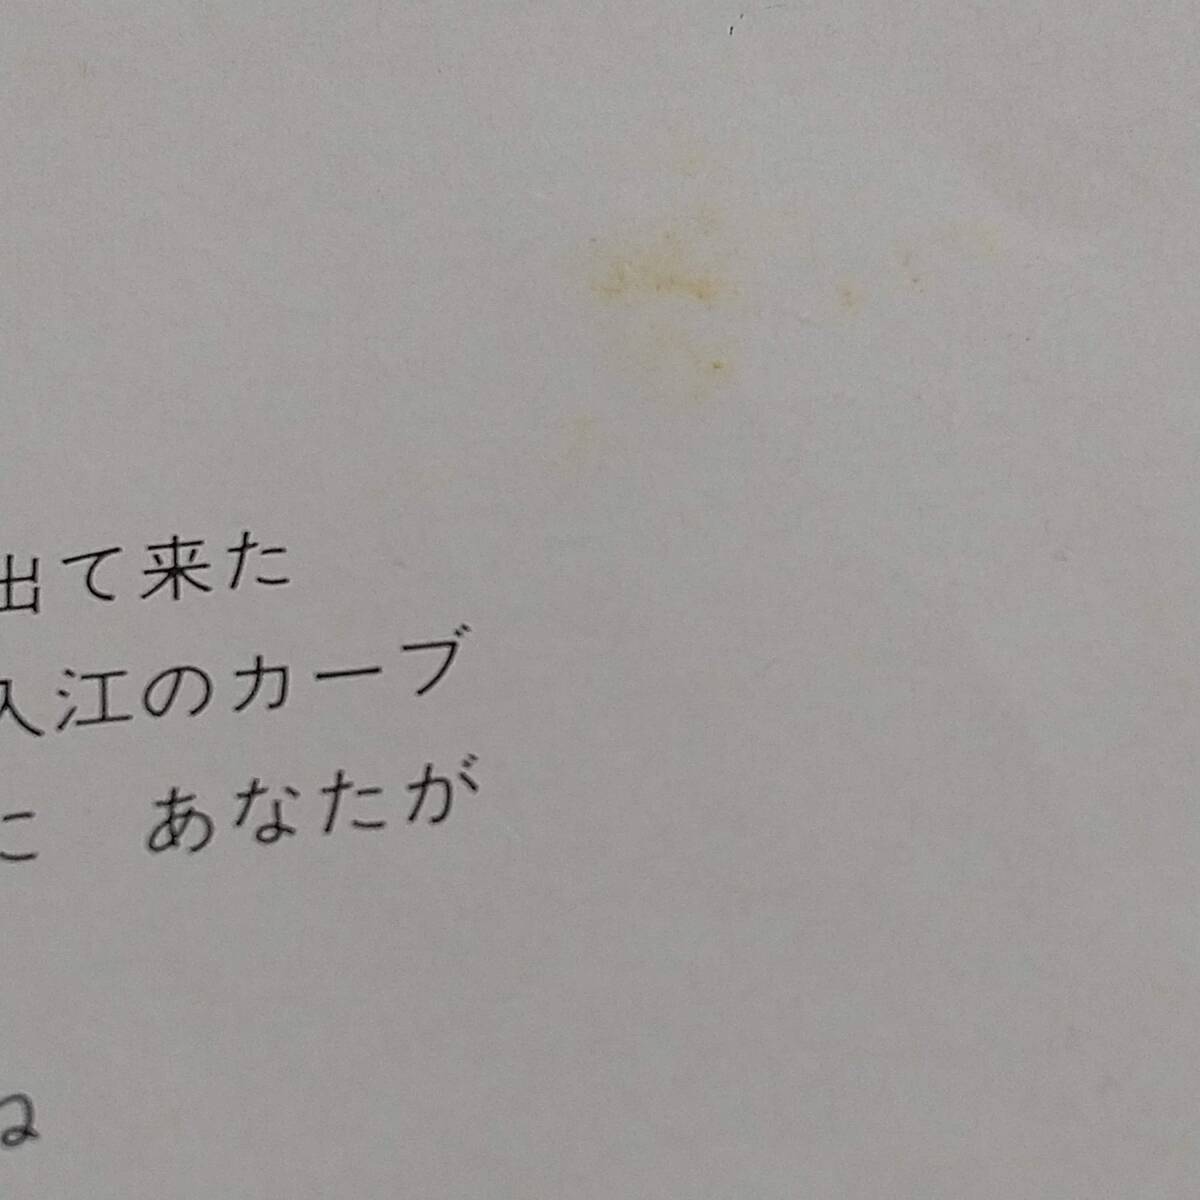 出て来た
入江のカーブ
に　あなたが
ね